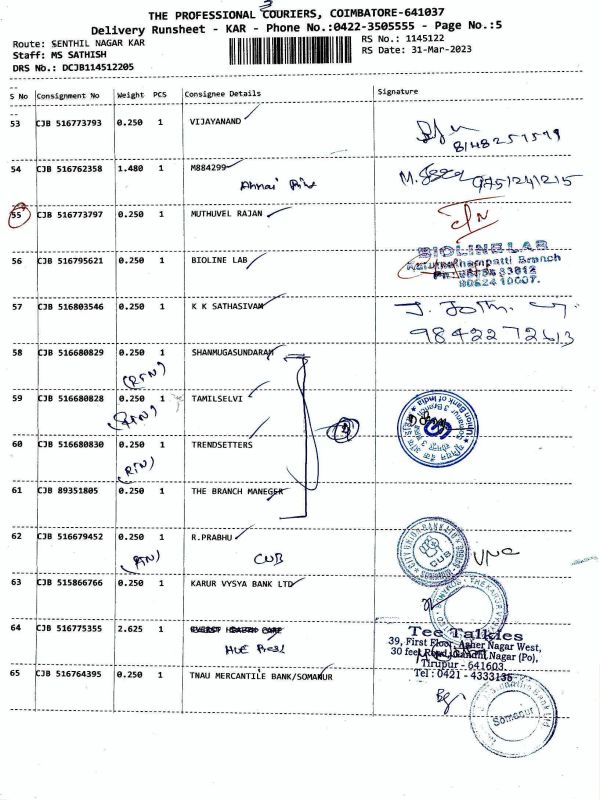 THE PROFESSIONAL COURIERS, COIMBATORE-641037
Delivery Runsheet - KAR - Phone No.:0422-3505555 - Page No.:5
Route: SENTHIL NAGAR KAR
RS No.: 1145122
Staff: MS SATHISH
RS Date: 31-Mar-2023
DRS No.: DCJB114512205
S No Consignment No Weight PCS Consignee Details Signature
53 CJB 516773793 0.250 1 VIJAYANAND
8148251599
54 CJB 516762358 1.480 1 M884299
9751241215
55 CJB 516773797 0.250 1 MUTHUVEL RAJAN
56 CJB 516795621 0.250 1 BIOLINE LAB
BIOLINE LAB
Branch
57 CJB 516803546 0.250 1 K K SATHASIVAM
58 CJB 516680829 0.250 1 SHANMUGASUNDARAM
59 CJB 516680828 0.250 1 TAMILSELVI
Union Bank of India
60 CJB 516680830 0.250 1 TRENDSETTERS
61 CJB 89351805 0.250 1 THE BRANCH MANEGER
62 CJB 516679452 0.250 1 R.PRABHU
CUB
63 CJB 515866766 0.250 1 KARUR VYSYA BANK LTD
64 CJB 516775355 2.625 1
Tee Talkies
39, First Floor, Asher Nagar West,
30 feet Road, Gandhi Nagar (Po),
Tirupur - 641603.
Tel : 0421 - 4333135
65 CJB 516764395 0.250 1 TNAU MERCANTILE BANK/SOMANUR
Somanur